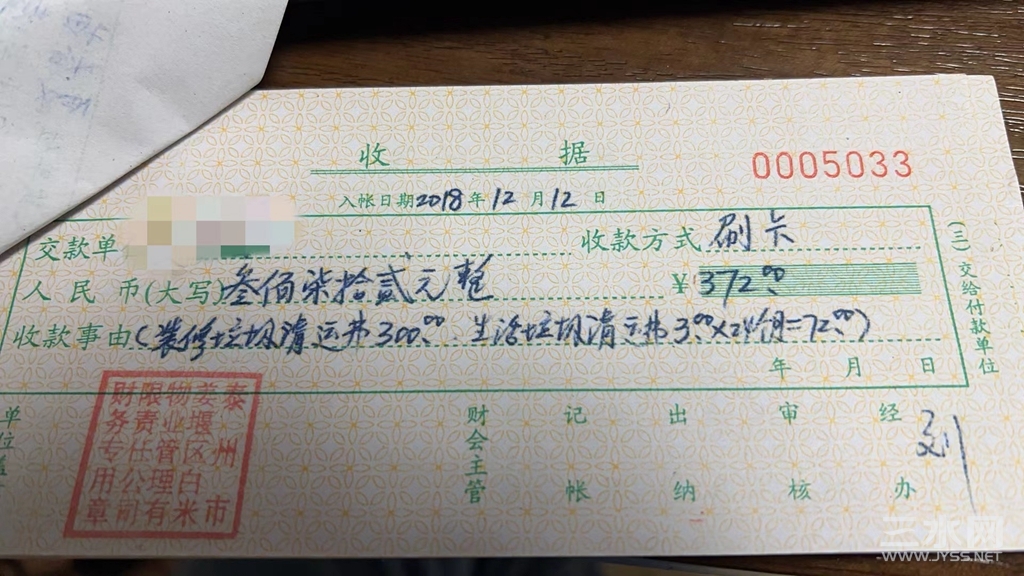 收 据
0005033
入帐日期2018年12月12日
交款单
收款方式 刷卡
人民币(大写) 叁佰柒拾贰元整
¥372.00
收款事由(装修垃圾清运费300.00 生活垃圾清运费3.00×24个月=72.00)
年 月 日
(三)交给付款单位
财会主管 记帐 出纳 审核 经办 刘
泰州市姜堰区白米物业管理有限责任公司财务专用章
三水网
WWW.JYSS.NET